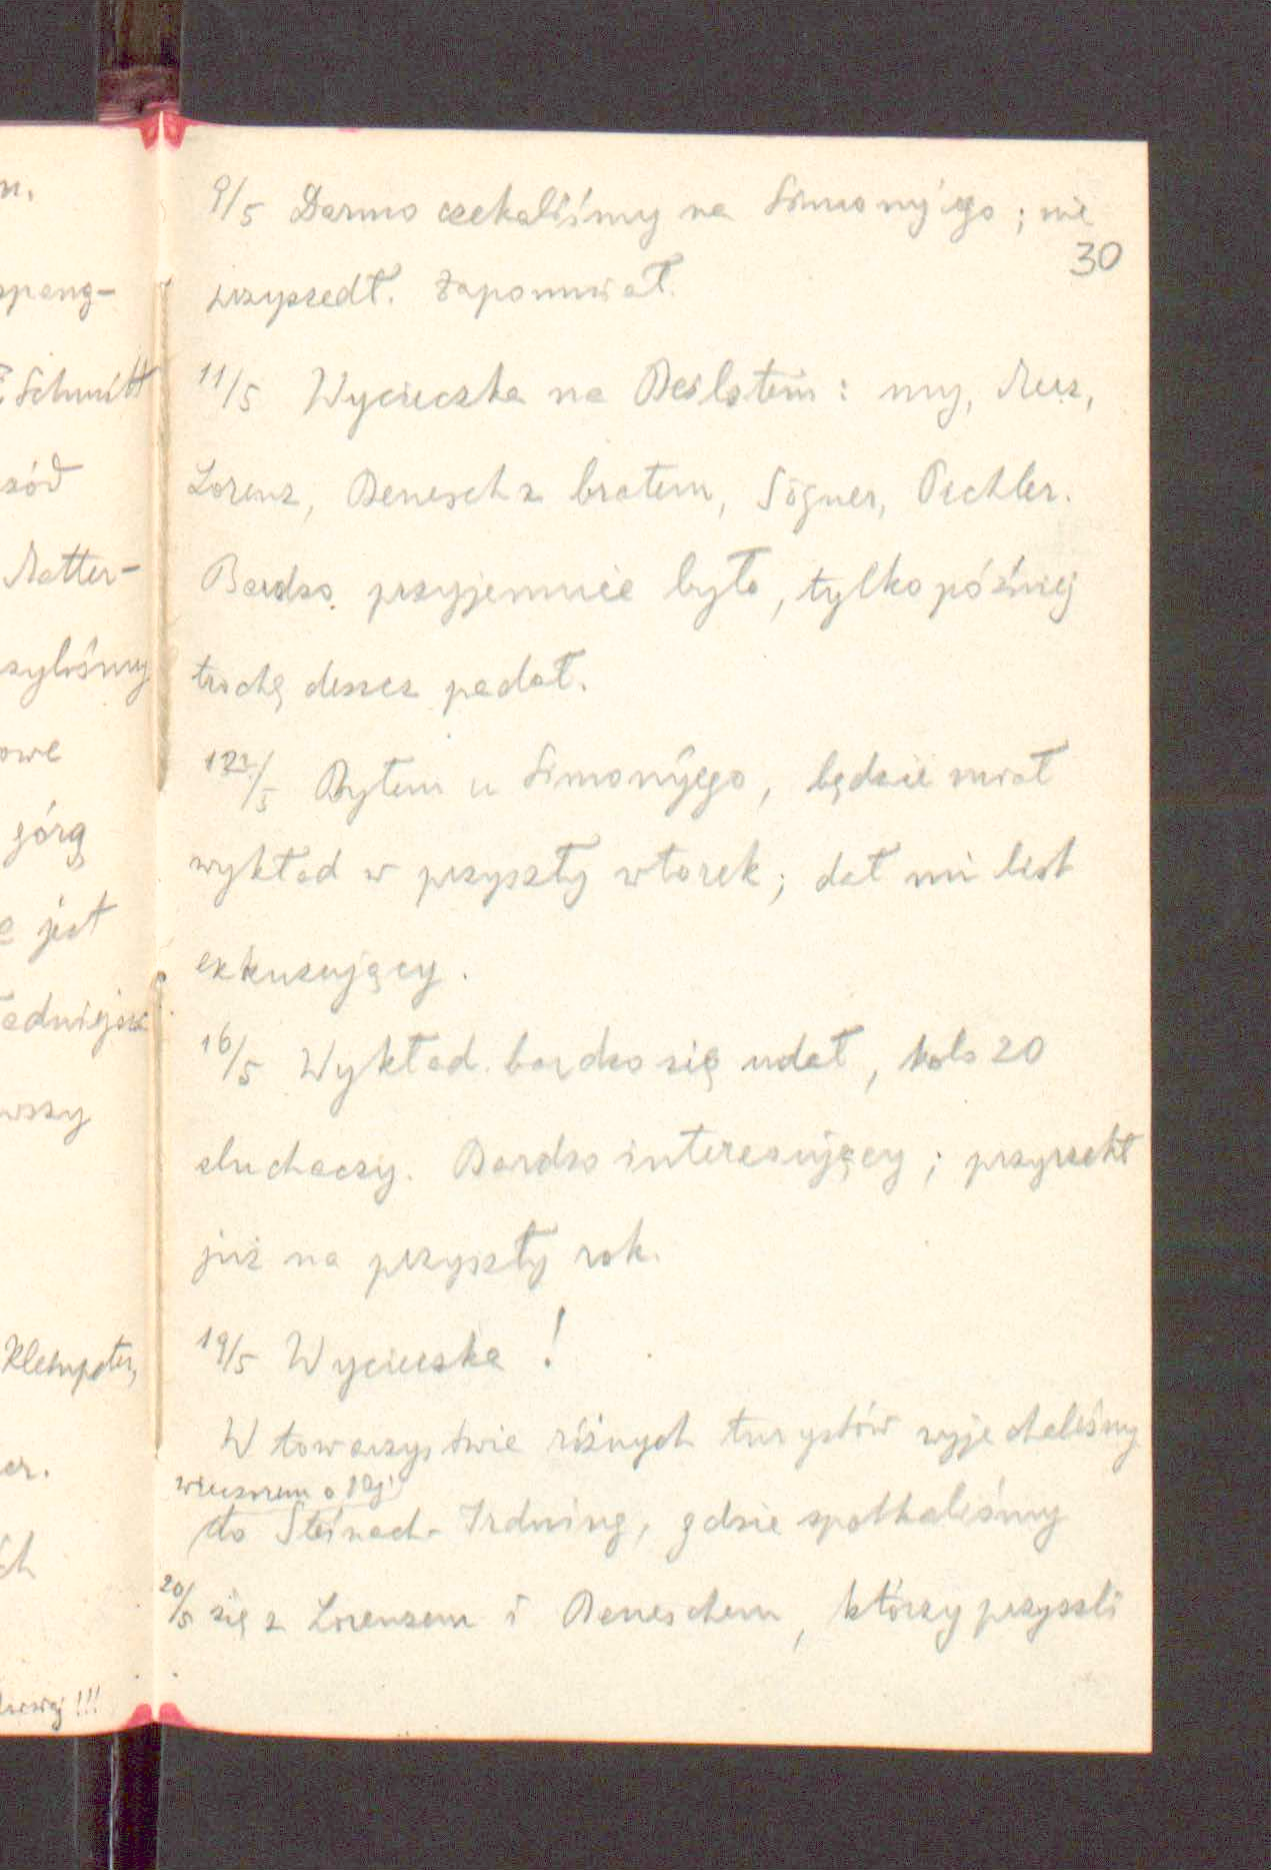 n.
ppang-
Schmitt
zód
Matter-
szyliśmy
owe
górą
e jest
ładniejsze
wszy
Klempeter,
er.
ch
!!!
9/5 Darmo czekaliśmy na Simony'ego; nie
30
przyszedł. Zapomniał.
11/5 Wycieczka na Beilstein: my, Mus,
Lorenz, Benesch z bratem, Sögner, Pichler.
Bardzo przyjemnie było, tylko później
trochę deszcz padał.
12/5 Byłem u Simony'ego, będzie miał
wykład w przyszły wtorek; dał mi list
exkuzujący.
16/5 Wykład bardzo się udał, koło 20
słuchaczy. Bardzo interesujący; przyrzekł
już na przyszły rok.
19/5 Wycieczka!
W towarzystwie różnych turystów wyjechaliśmy
wieczorem o 10ej
do Steinach-Irdning, gdzie spotkaliśmy
20/5 się z Lorenzem i Beneschem, którzy przyszli